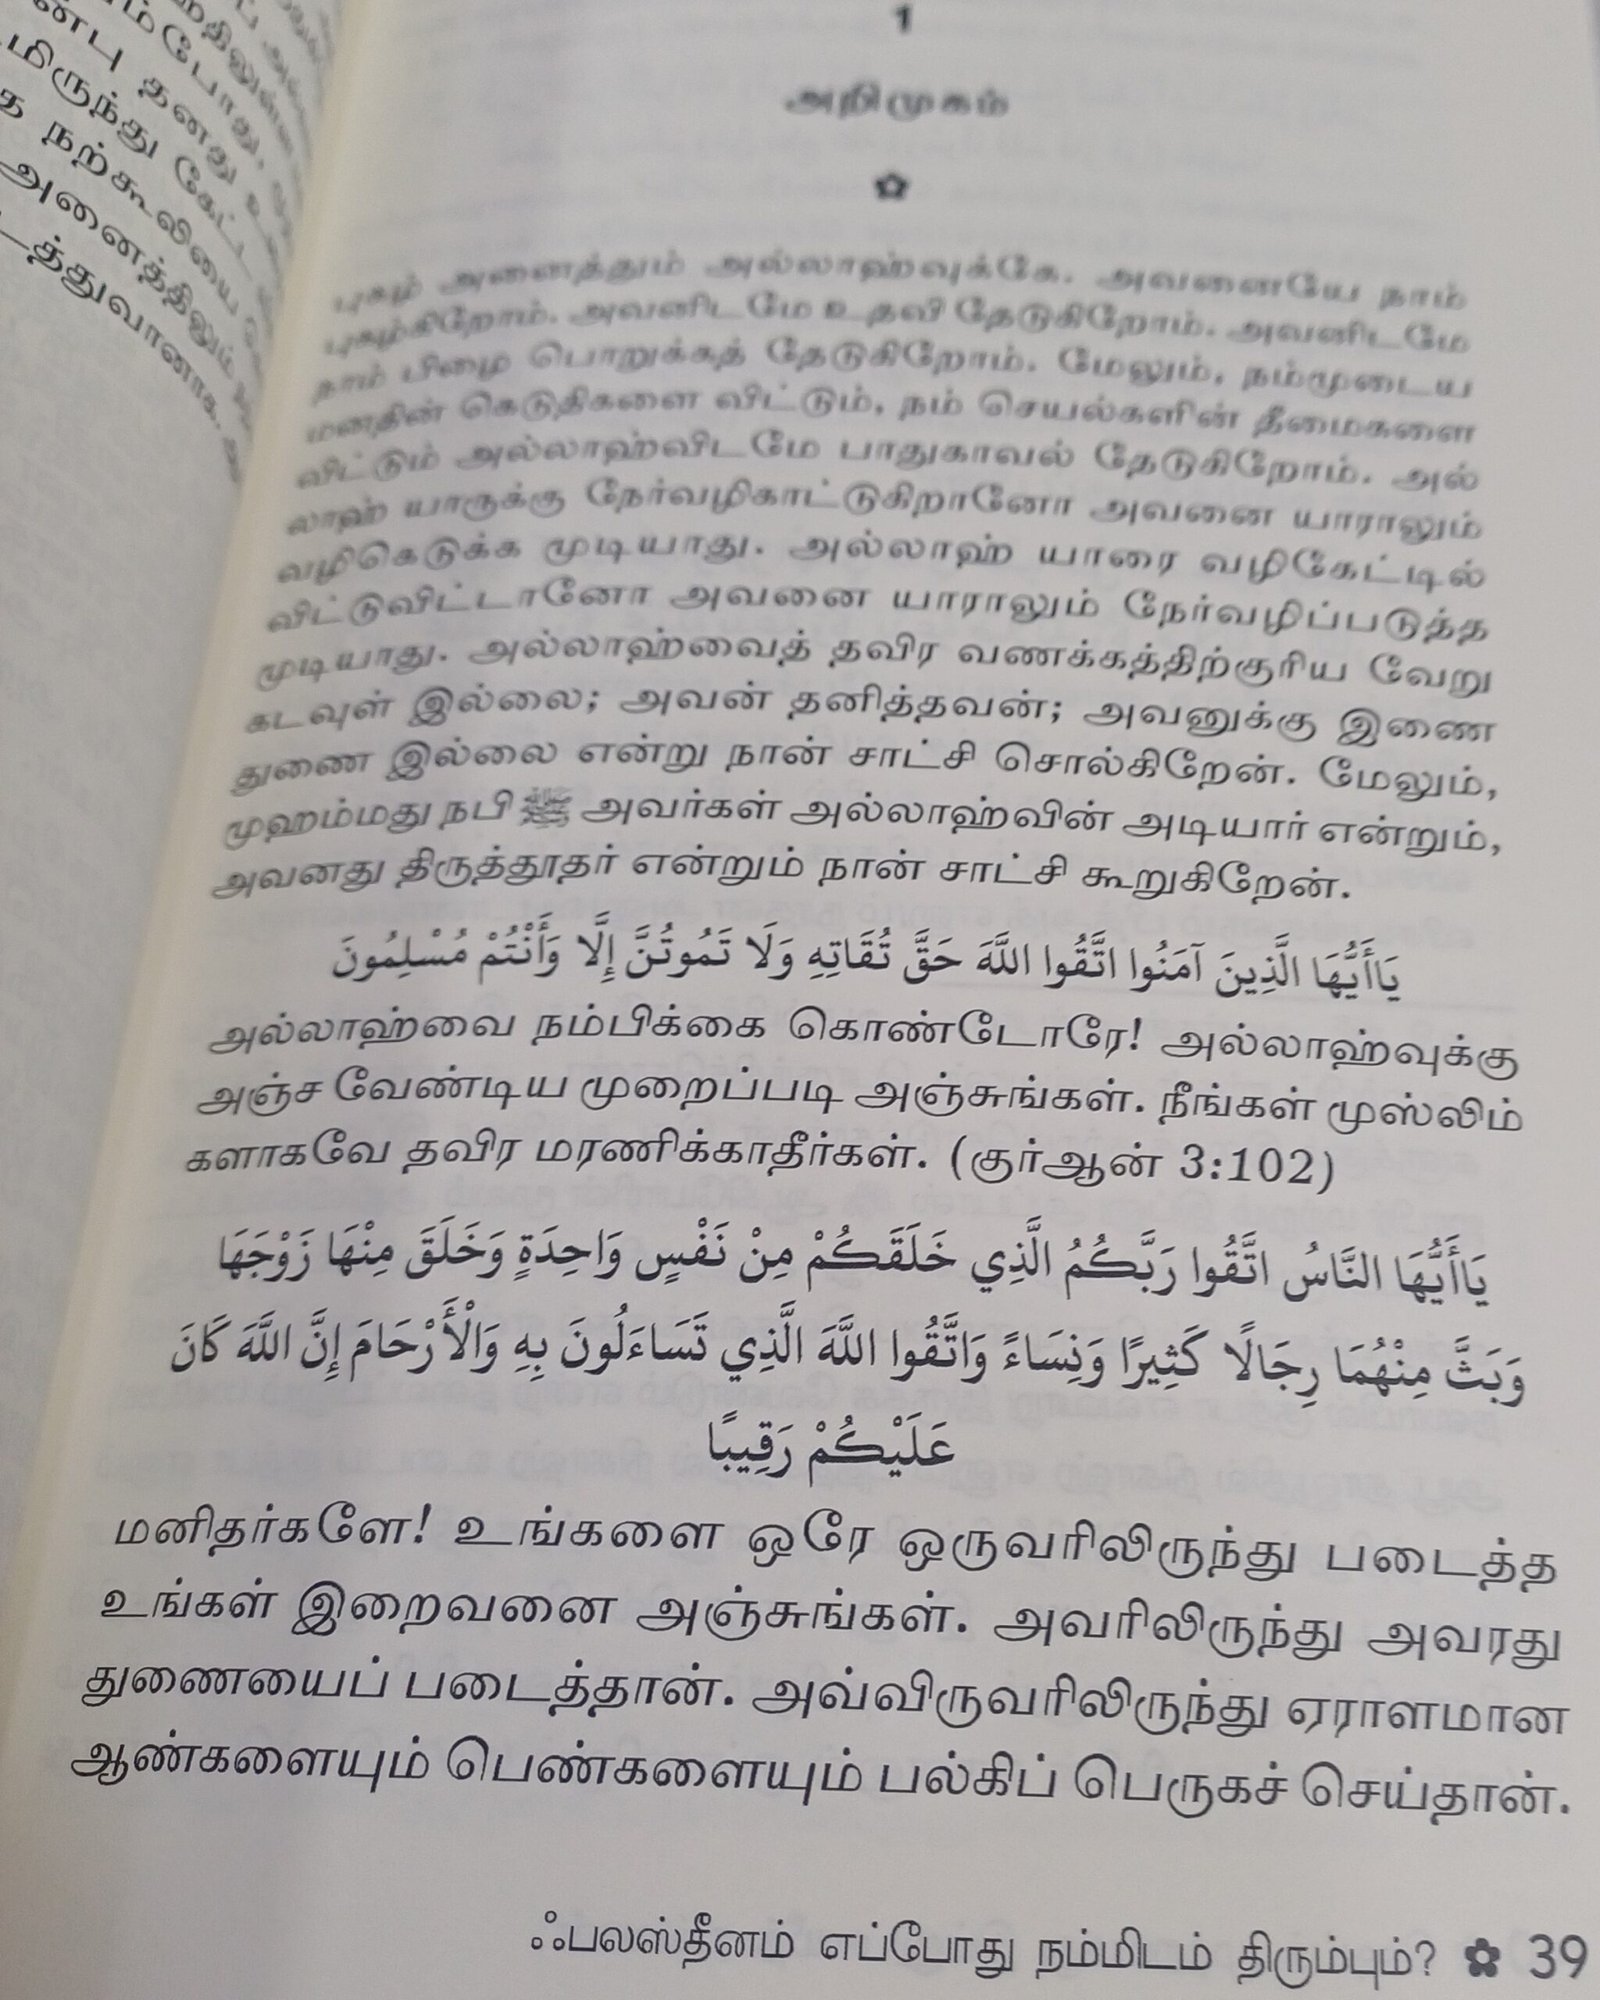 ன்பு தனது
மிருந்து கேட்ட
த நற்கூலியை
அனைத்திலும்
டத்துவானாக.
1
அறிமுகம்
புகழ் அனைத்தும் அல்லாஹ்வுக்கே. அவனையே நாம்
புகழ்கிறோம். அவனிடமே உதவி தேடுகிறோம். அவனிடமே
நாம் பிழை பொறுக்கத் தேடுகிறோம். மேலும், நம்முடைய
மனதின் கெடுதிகளை விட்டும், நம் செயல்களின் தீமைகளை
விட்டும் அல்லாஹ்விடமே பாதுகாவல் தேடுகிறோம். அல்
லாஹ் யாருக்கு நேர்வழிகாட்டுகிறானோ அவனை யாராலும்
வழிகெடுக்க முடியாது. அல்லாஹ் யாரை வழிகேட்டில்
விட்டுவிட்டானோ அவனை யாராலும் நேர்வழிப்படுத்த
முடியாது. அல்லாஹ்வைத் தவிர வணக்கத்திற்குரிய வேறு
கடவுள் இல்லை; அவன் தனித்தவன்; அவனுக்கு இணை
துணை இல்லை என்று நான் சாட்சி சொல்கிறேன். மேலும்,
முஹம்மது நபி ﷺ அவர்கள் அல்லாஹ்வின் அடியார் என்றும்,
அவனது திருத்தூதர் என்றும் நான் சாட்சி கூறுகிறேன்.
يَاأَيُّهَا الَّذِينَ آمَنُوا اتَّقُوا اللَّهَ حَقَّ تُقَاتِهِ وَلَا تَمُوتُنَّ إِلَّا وَأَنْتُمْ مُسْلِمُونَ
அல்லாஹ்வை நம்பிக்கை கொண்டோரே! அல்லாஹ்வுக்கு
அஞ்ச வேண்டிய முறைப்படி அஞ்சுங்கள். நீங்கள் முஸ்லிம்
களாகவே தவிர மரணிக்காதீர்கள். (குர்ஆன் 3:102)
يَاأَيُّهَا النَّاسُ اتَّقُوا رَبَّكُمُ الَّذِي خَلَقَكُمْ مِنْ نَفْسٍ وَاحِدَةٍ وَخَلَقَ مِنْهَا زَوْجَهَا
وَبَثَّ مِنْهُمَا رِجَالًا كَثِيرًا وَنِسَاءً وَاتَّقُوا اللَّهَ الَّذِي تَسَاءَلُونَ بِهِ وَالْأَرْحَامَ إِنَّ اللَّهَ كَانَ
عَلَيْكُمْ رَقِيبًا
மனிதர்களே! உங்களை ஒரே ஒருவரிலிருந்து படைத்த
உங்கள் இறைவனை அஞ்சுங்கள். அவரிலிருந்து அவரது
துணையைப் படைத்தான். அவ்விருவரிலிருந்து ஏராளமான
ஆண்களையும் பெண்களையும் பல்கிப் பெருகச் செய்தான்.
ஃபலஸ்தீனம் எப்போது நம்மிடம் திரும்பும்? ✿ 39